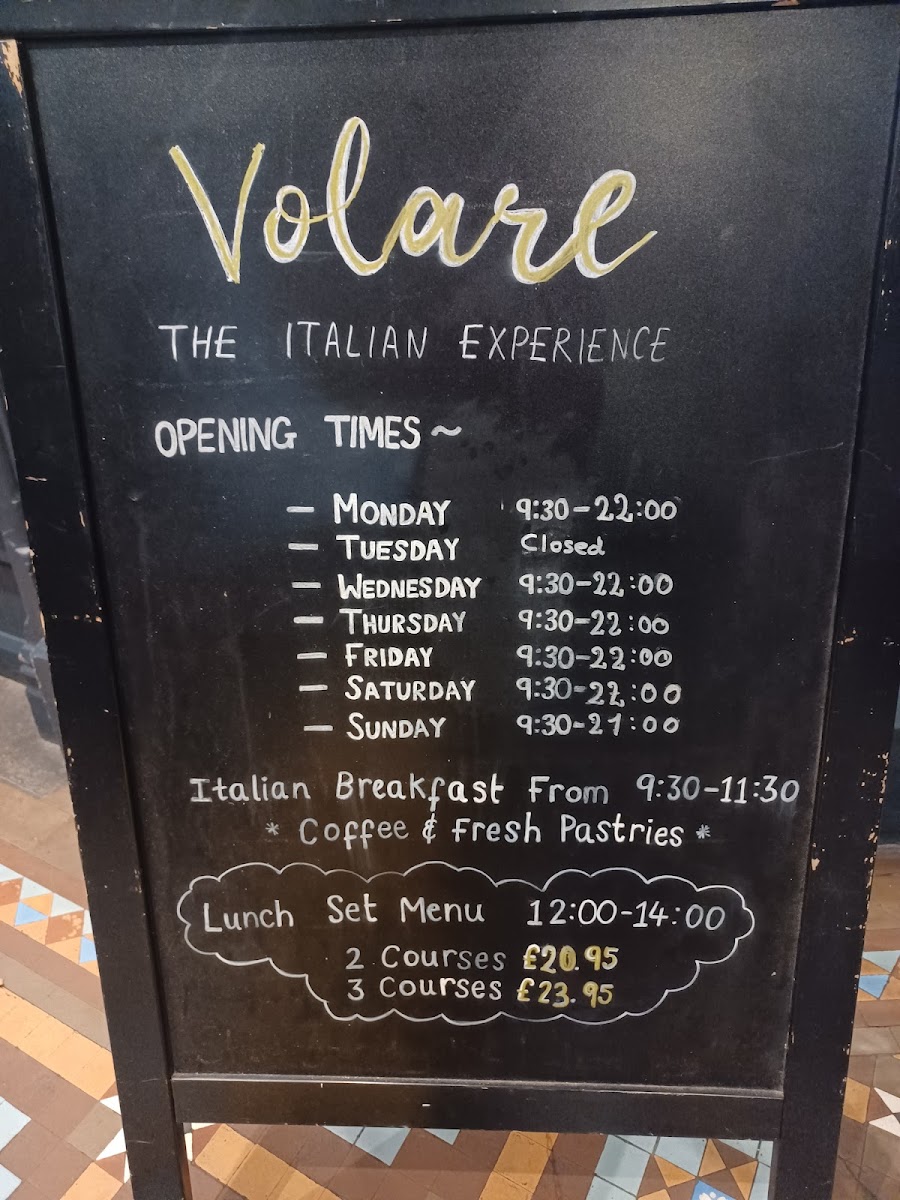 Volare
THE ITALIAN EXPERIENCE
OPENING TIMES ~
— MONDAY 9:30-22:00
— TUESDAY Closed
— WEDNESDAY 9:30-22:00
— THURSDAY 9:30-22:00
— FRIDAY 9:30-22:00
— SATURDAY 9:30-22:00
— SUNDAY 9:30-21:00
Italian Breakfast From 9:30-11:30
* Coffee & Fresh Pastries *
Lunch Set Menu 12:00-14:00
2 Courses £20.95
3 Courses £23.95